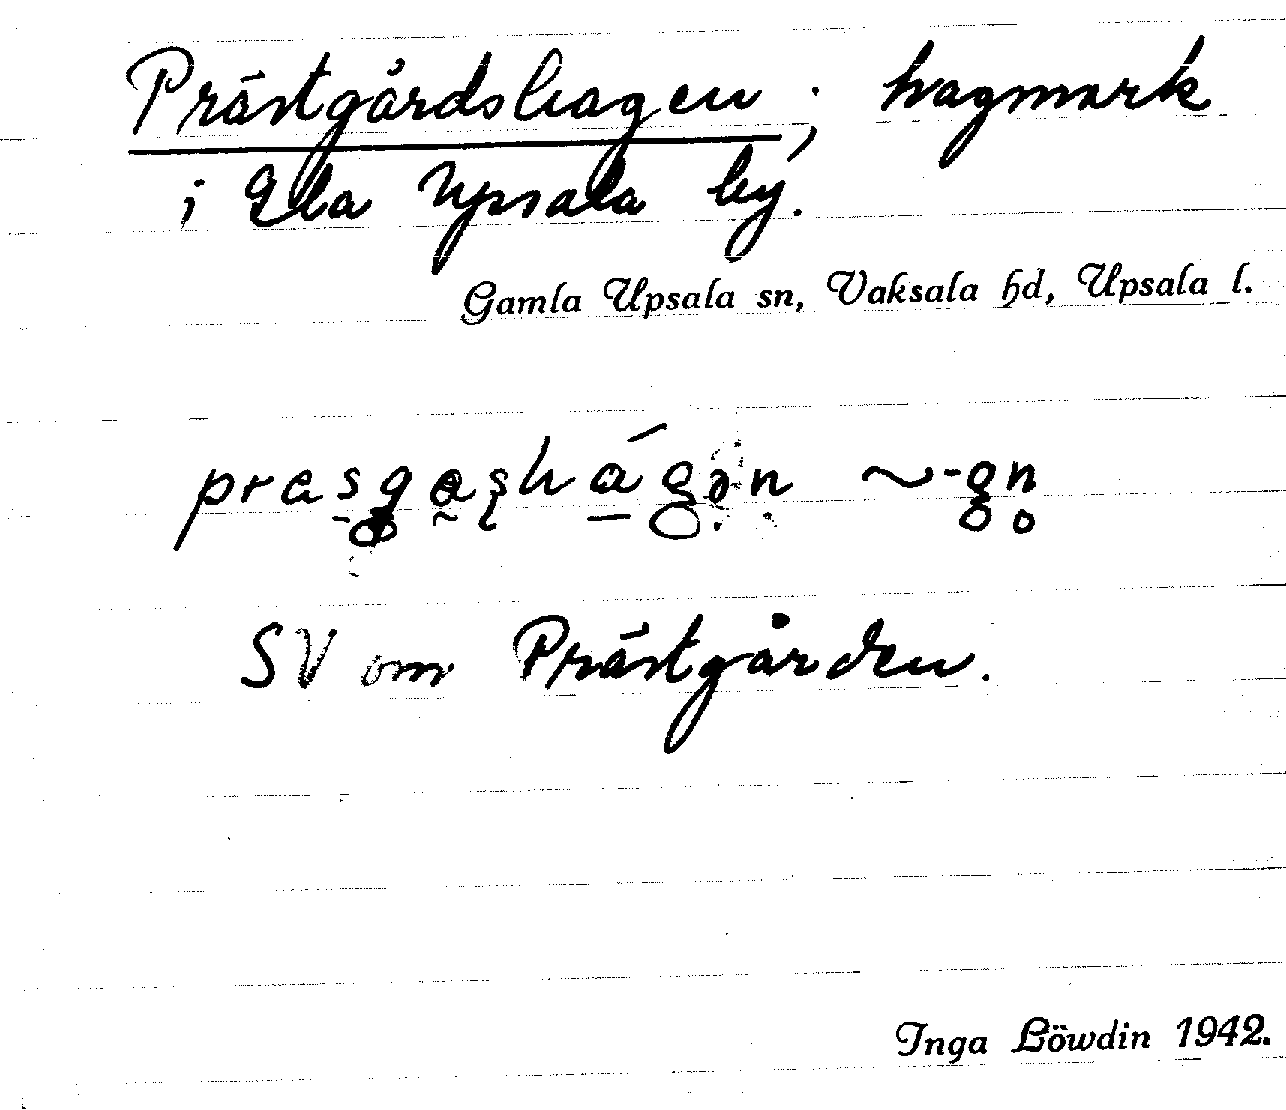 Prästgårdshagen; hagmark
i Gla Upsala by.
Gamla Upsala sn, Vaksala hd, Upsala l.
SV om Prästgården.
Inga Löwdin 1942.